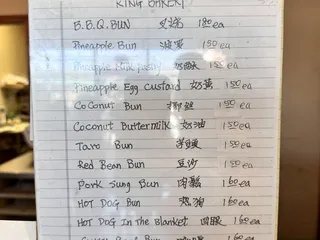 KING BAKERY
B.B.Q. BUN 叉燒 1.80 ea
Pineapple Bun 菠蘿 1.50 ea
Pineapple Milk Pastry 奶酥 1.50 ea
Pineapple Egg Custard 奶黃 1.50 ea
Coconut Bun 椰 1.50 ea
Coconut Buttermilk 奶油 1.50 ea
Taro Bun 1.50 ea
Red Bean Bun 豆沙 1.50 ea
Pork Sung Bun 肉鬆 1.60 ea
HOT DOG Bun 熱狗 1.60 ea
HOT DOG In The Blanket 1.60 ea
Bun 1.60 ea